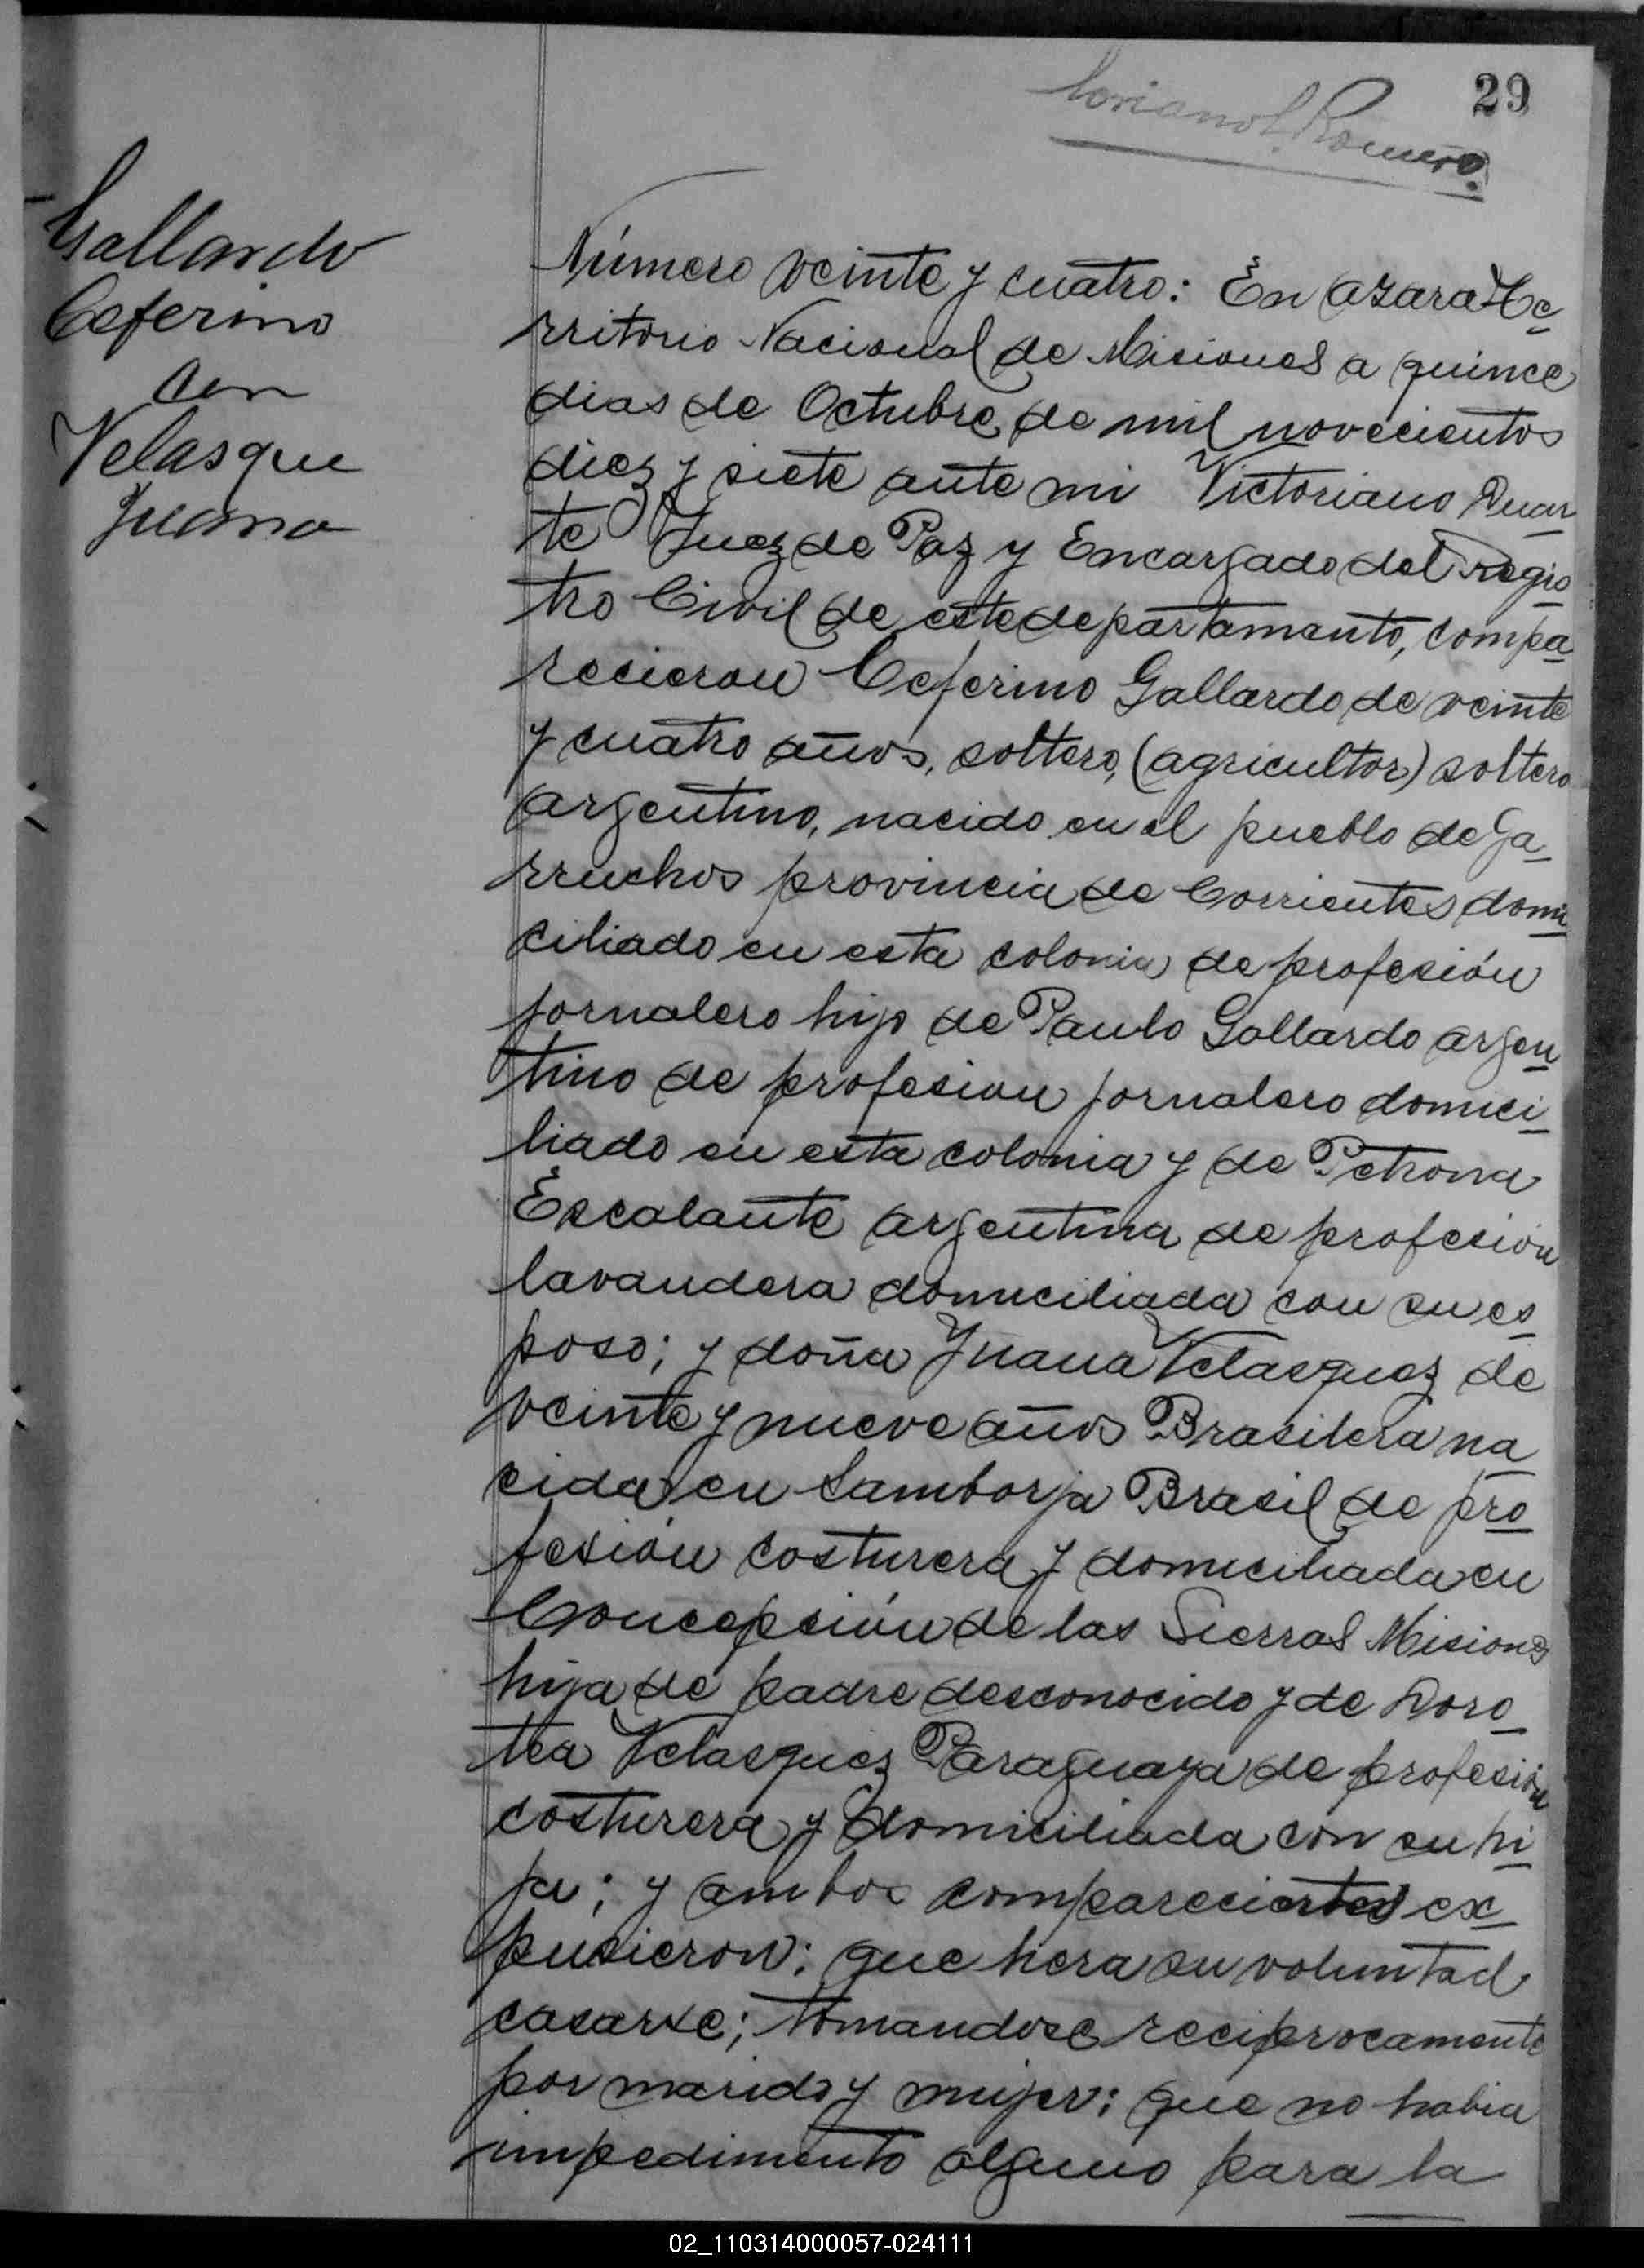 29
Romero.
Gallardo
Ceferino
con
Velasque
Juana
Número veinte y cuatro: En Azara Te
rritorio Nacional de Misiones a quince
dias de Octubre de mil novecientos
diez y siete ante mi Victoriano Duar
te Juez de Paz y Encargado del regis
tro Civil de este departamento, compa
recieron Ceferino Gallardo de veinte
y cuatro años, soltero, (agricultor) soltero
argentino, nacido en el pueblo de Ga
rruchos provincia de Corrientes domi
ciliado en esta colonia de profesión
jornalero hijo de Paulo Gallardo argen
tino de profesion jornalero domici
liado en esta colonia y de Petrona
Escalante argentina de profesión
lavandera domiciliada con su es
poso; y doña Juana Velasquez de
veinte y nueve años Brasilera na
cida en Samborja Brasil de pro
fesión costurera y domiciliada en
Concepción de las Sierras Misiones
hija de padre desconocido y de Doro
tea Velasquez Paraguaya de profesión
costurera y domiciliada con su hi
ja; y ambos comparecientes ex
pusieron: que hera su voluntad
casarse; tomandose reciprocamente
por marido y mujer; que no habia
impedimento alguno para la
02_110314000057-024111